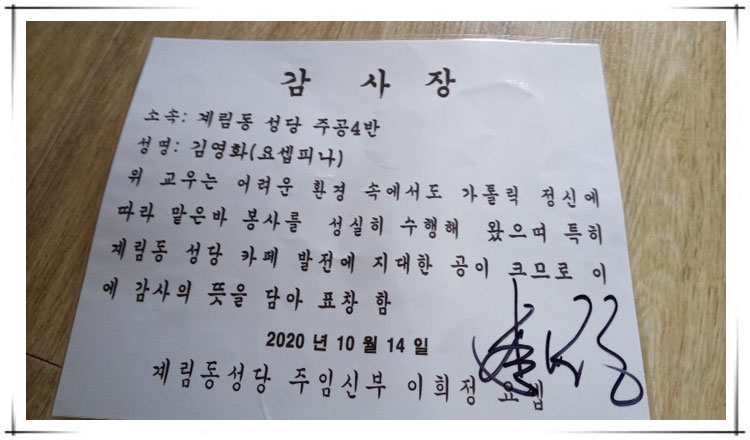 감 사 장
소속: 계림동 성당 주공4반
성명: 김영화(요셉피나)
위 교우는 어려운 환경 속에서도 가톨릭 정신에
따라 맡은바 봉사를 성실히 수행해 왔으며 특히
계림동 성당 카페 발전에 지대한 공이 크므로 이
에 감사의 뜻을 담아 표창 함
2020 년 10 월 14 일
계림동성당 주임신부 이희정 요셉